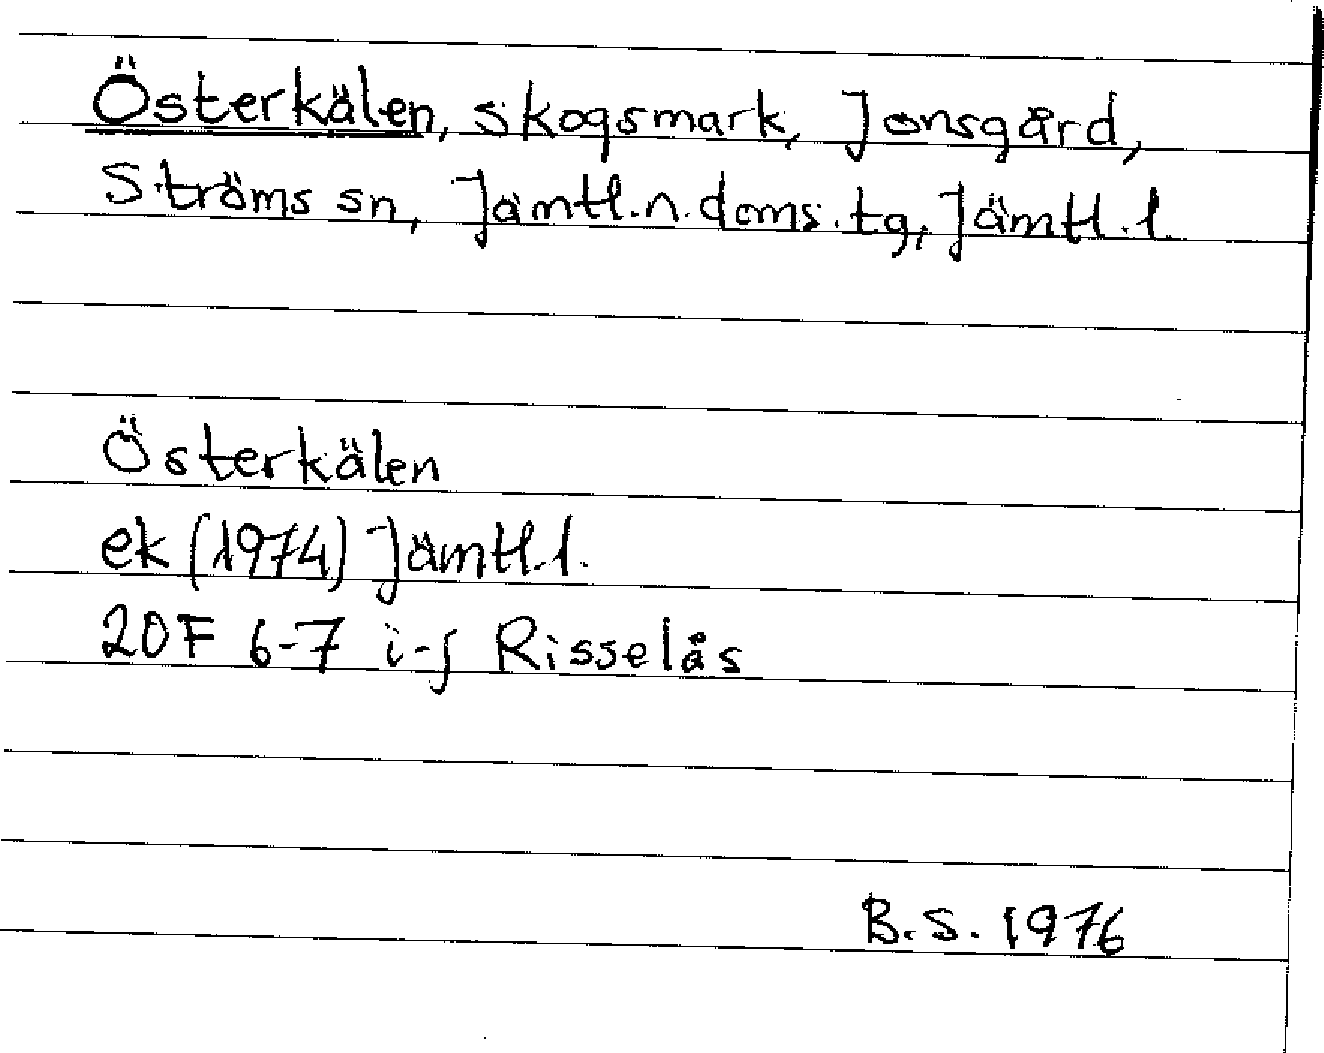 Österkälen, skogsmark, Jonsgård,
Ströms sn, Jämtl.n.doms.tg, Jämtl.l.
Österkälen
ek (1974) Jämtl.l.
20F 6-7 i-j Risselås
B.S. 1976